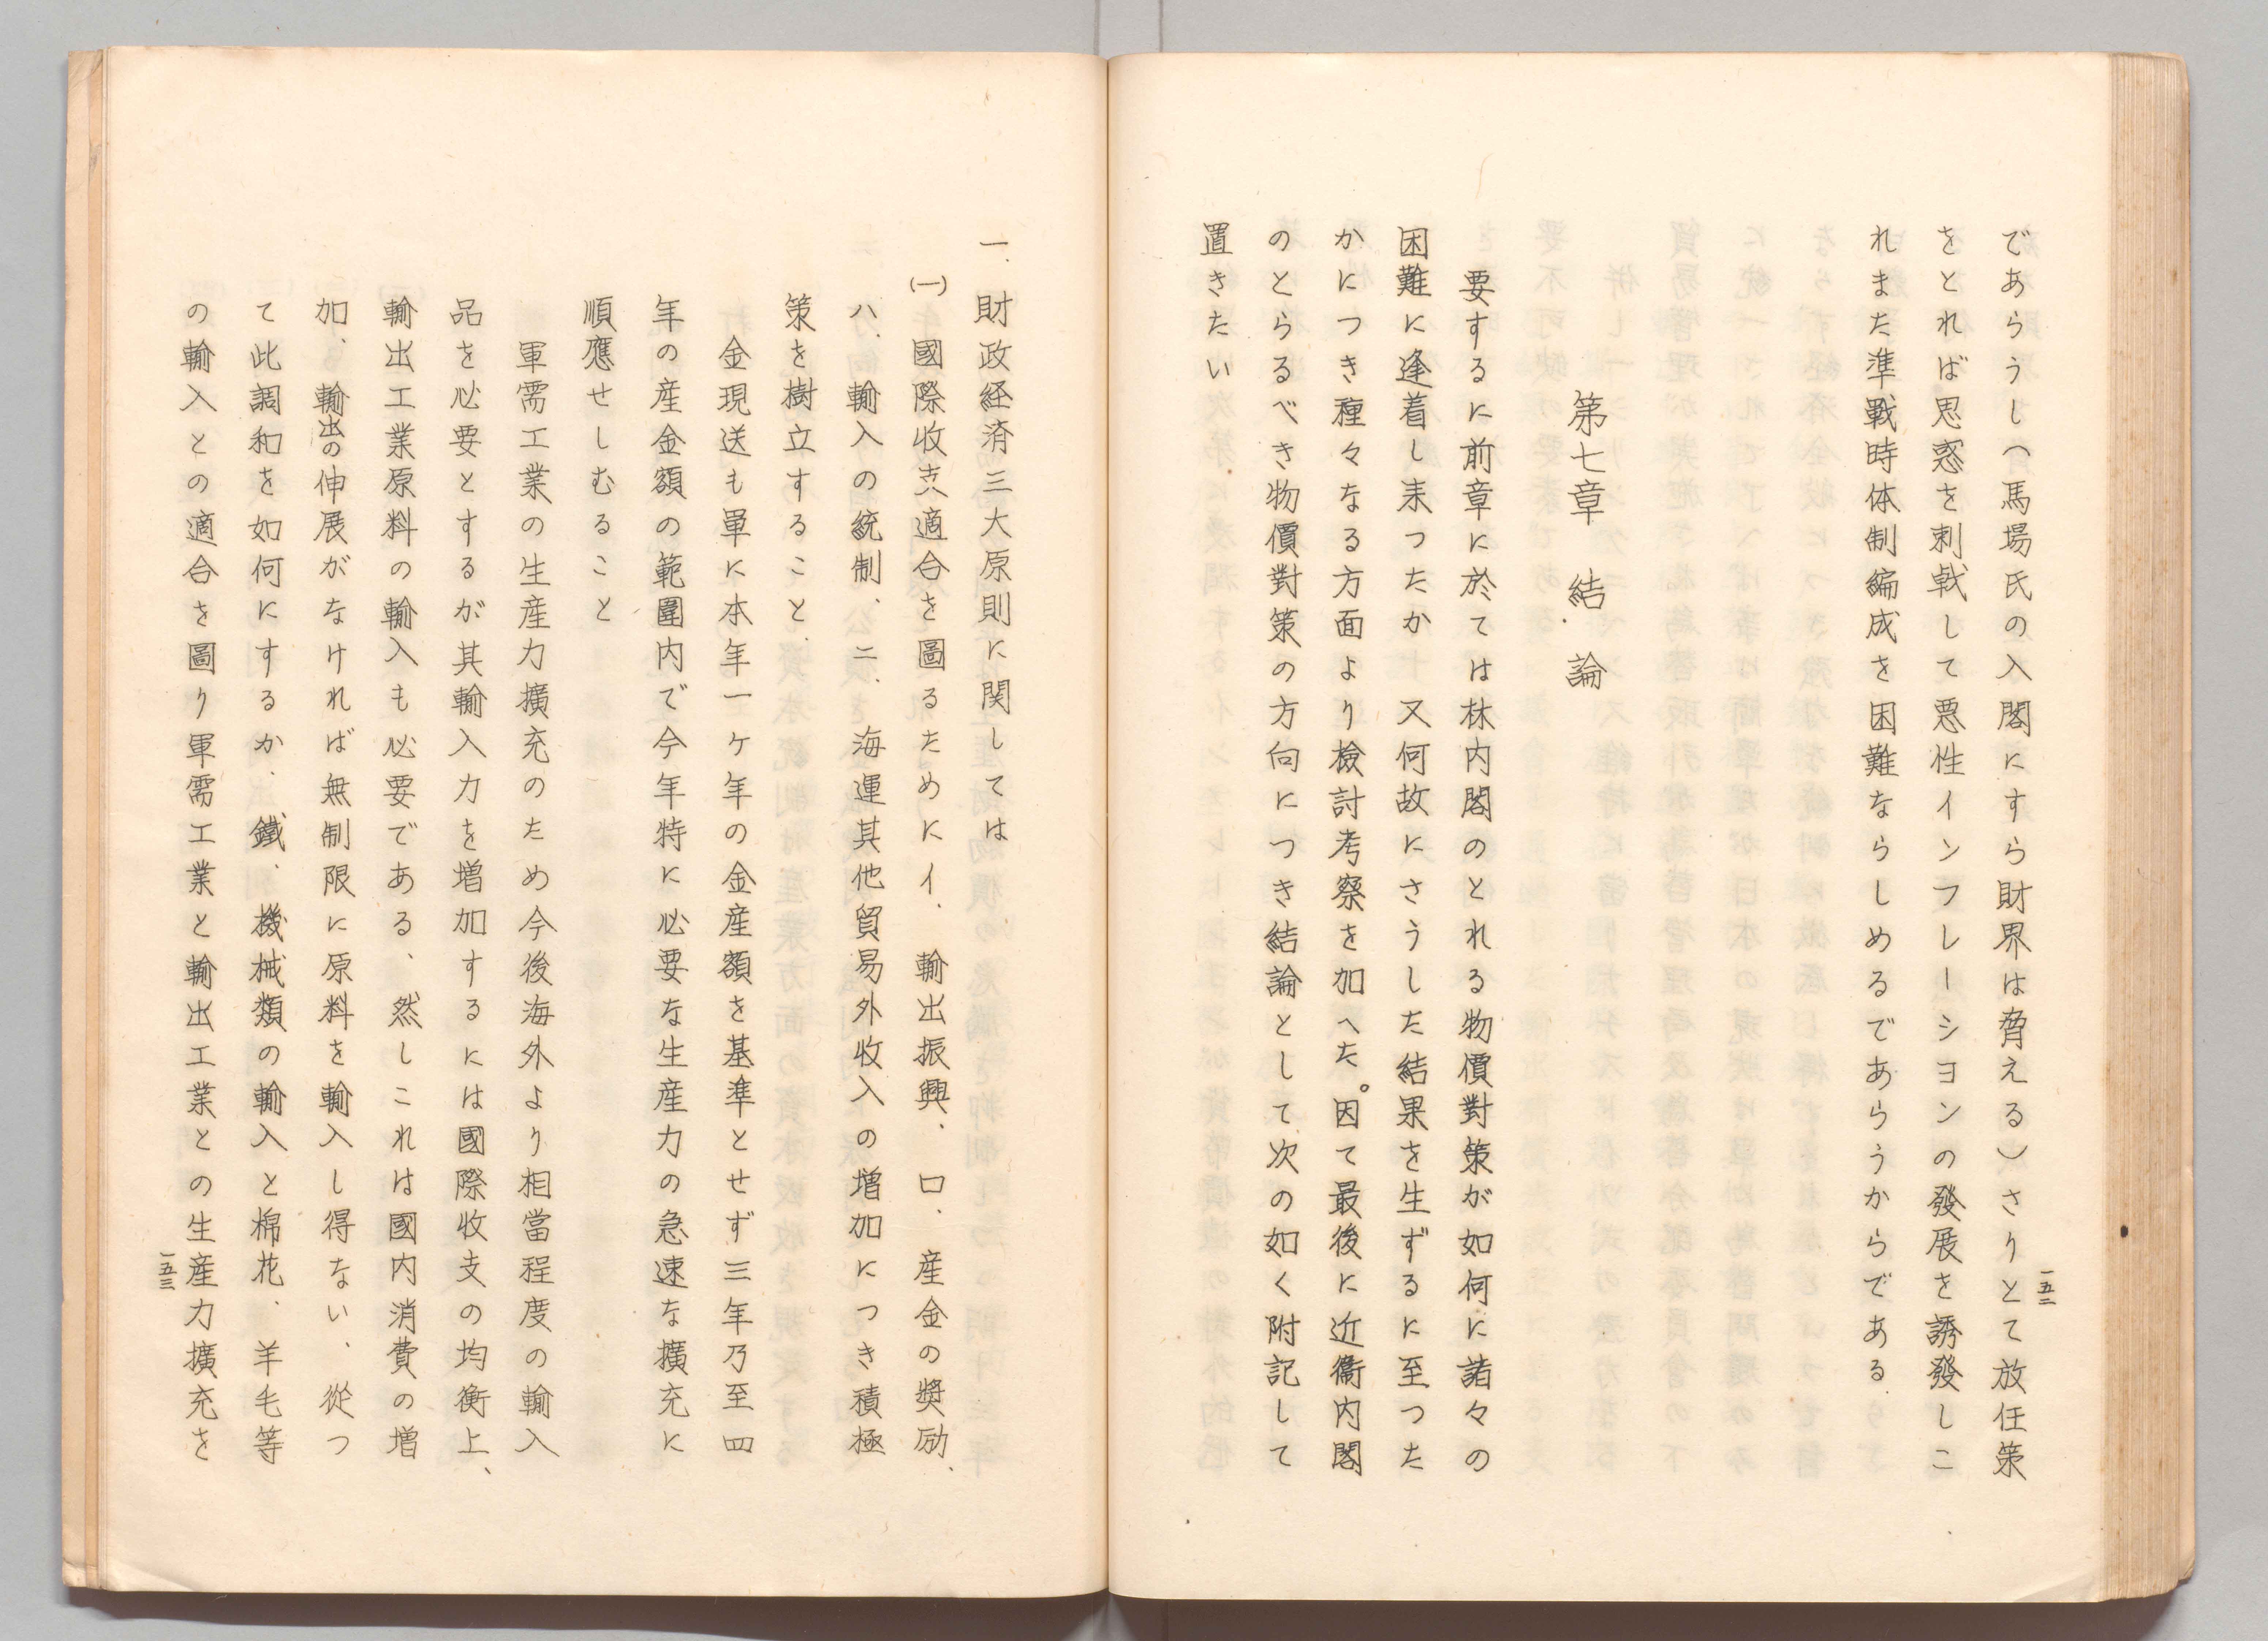 一五二
であらうし（馬場氏の入閣にすら財界は脅える）さりとて放任策
をとれば思惑を刺戟して悪性インフレーシヨンの發展を誘發しこ
れまた準戰時体制編成を困難ならしめるであらうからである
第七章　結論
要するに前章に於ては林内閣のとれる物價對策が如何に諸々の
困難に逢着し来つたか　又何故にさうした結果を生ずるに至つた
かにつき種々なる方面より檢討考察を加へた。因て最後に近衞内閣
のとらるべき物價對策の方向につき結論として次の如く附記して
置きたい
一、財政経済三大原則に関しては
(一)國際收支適合を圖るためにイ、輸出振興、ロ、産金の奬励、
ハ、輸入の統制、ニ、海運其他貿易外收入の増加につき積極
策を樹立すること
金現送も単に本年一ヶ年の金産額を基準とせず三年乃至四
年の産金額の範圍内で今年特に必要な生産力の急速な擴充に
順應せしむること
軍需工業の生産力擴充のため今後海外より相當程度の輸入
品を必要とするが其輸入力を増加するには國際收支の均衡上、
輸出工業原料の輸入も必要である、然しこれは國内消費の増
加、輸出の伸展がなければ無制限に原料を輸入し得ない、從つ
て此調和を如何にするか、鐵、機械類の輸入と棉花、羊毛等
の輸入との適合を圖り軍需工業と輸出工業との生産力擴充を
一五三